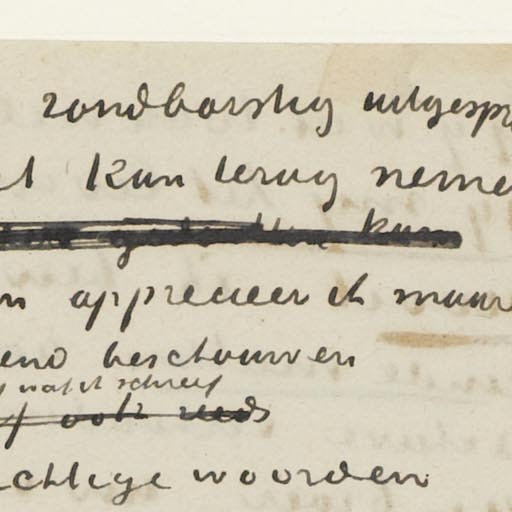 rondborstig uitgespr
et kan terug neme
kan
en apprecieer ik maar
end beschouwen
wat ik schreef
of ook reeds
chtige woorden